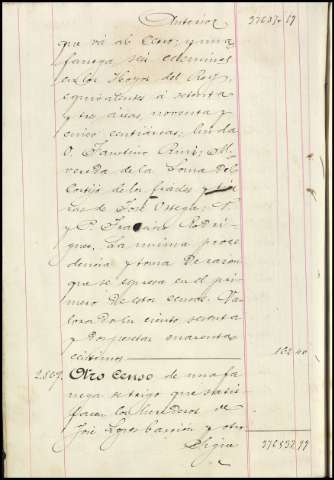 Anterior 37637. 59
que vá al Cerro; y una
fanega seis celemines
en los Hoyos del Rey,
equivalentes á setenta
y tres áreas, noventa y
cinco centiáreas; linda
O. Faustino Ruiz; M.
vereda de la Loma del
Cortijo de los frailes y
de José Ortega; N.
y P. Francisco Rodri-
guez. La misma proce-
dencia y toma de razon
que se espresa en el pri-
mero de estos censos. Va-
lorado en ciento setenta
y dos pesetas cuarenta
céntimos 172 40
2.869. Otro Censo de una fa-
nega de trigo que satis-
facen los herederos de
José Lopez Carrion y otro
Sigue